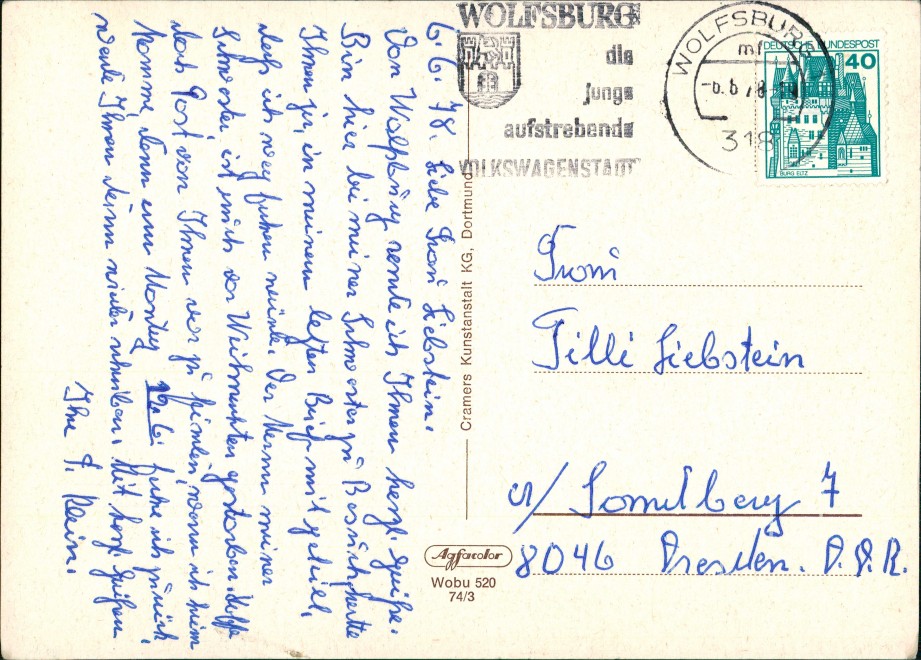 6.6.78. Liebe Frau Liebstein.
Von Wolfsburg sende ich Ihnen herzl. Grüße.
Bin hier bei meiner Schwester zu Besuch, hatte
Ihnen ja, in meinem letzten Brief mitgeteilt,
daß ich weg fahren würde. Der Mann meiner
Schwester, ist mich vor Weihnachten gestorben. Hoffe
doch Post von Ihnen vor zu finden, wenn ich heim
komme, denn am Montag 12.6. fahre ich zurück
werde Ihnen dann wieder schreiben. Mit herzl. Grüßen
Ihre F. Klein.
WOLFSBURG
die
junge
aufstrebende
VOLKSWAGENSTADT
WOLFSBURG
-6.6.78
318
DEUTSCHE BUNDESPOST
40
BURG ELTZ
Cramers Kunstanstalt KG, Dortmund
Frau
Tilli Liebstein
8046 Dresden. D.D.R.
Agfacolor
Wobu 520
74/3